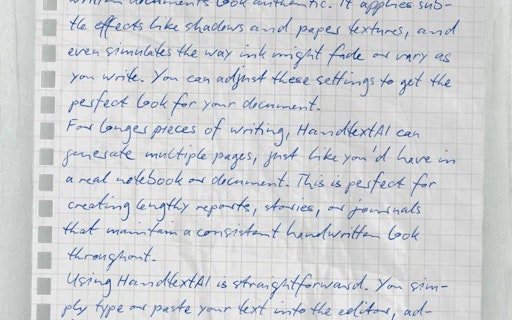 written documents look authentic. It applies sub-
tle effects like shadows and paper textures, and
even simulates the way ink might fade or vary as
you write. You can adjust these settings to get the
perfect look for your document.
For longer pieces of writing, HandtextAI can
generate multiple pages, just like you'd have in
a real notebook or document. This is perfect for
creating lengthy reports, stories, or journals
that maintain a consistent handwritten look
throughout.
Using HandtextAI is straightforward. You sim-
ply type or paste your text into the editor, ad-